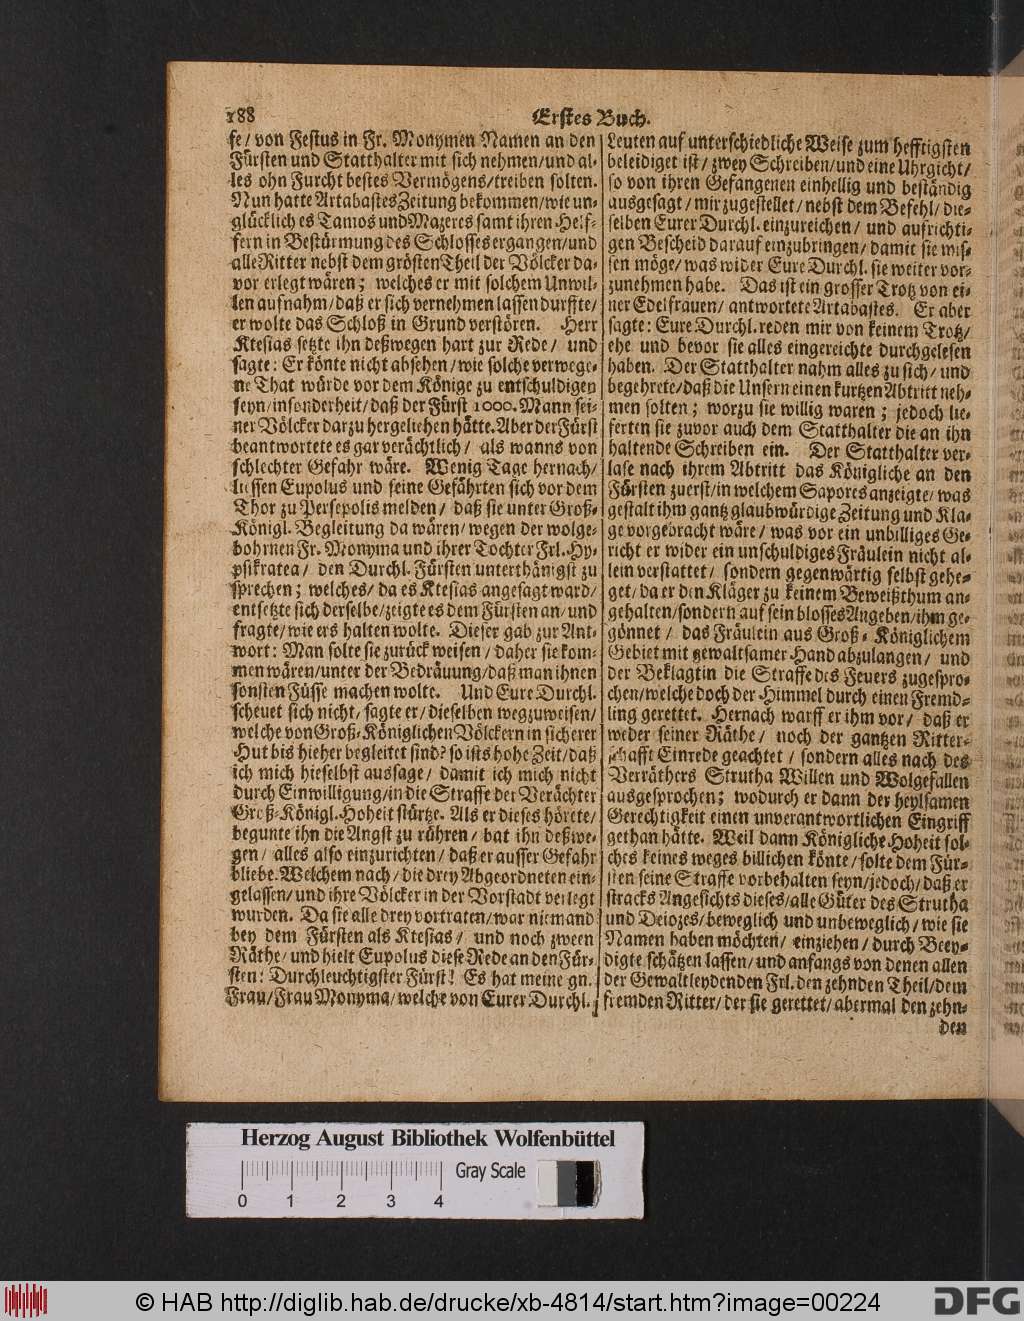 188
Erstes Buch.
fe/ von Festus in Fr. Monymen Namen an den
Fürsten und Statthalter mit sich nehmen/und al-
les ohn Furcht bestes Vermögens/treiben solten.
Nun hatte Artabastes Zeitung bekommen/wie un-
glücklich es Tamos und Mazeres samt ihren Helf-
fern in Bestürmung des Schlosses ergangen/und
alle Ritter nebst dem grösten Theil der Völcker da-
vor erlegt wären; welches er mit solchem Unwil-
len aufnahm/daß er sich vernehmen lassen durffte/
er wolte das Schloß in Grund verstören. Herr
Ktesias setzte ihn deßwegen hart zur Rede/ und
sagte: Er könte nicht absehen/wie solche verwege-
ne That würde vor dem Könige zu entschuldigen
seyn/insonderheit/daß der Fürst 1000. Mann sei-
ner Völcker darzu hergeliehen hätte. Aber der Fürst
beantwortete es gar verächtlich/ als wanns von
schlechter Gefahr wäre. Wenig Tage hernach/
liessen Eupolus und seine Gefährten sich vor dem
Thor zu Persepolis melden/ daß sie unter Groß-
Königl. Begleitung da wären/ wegen der wolge-
bohrnen Fr. Monyma und ihrer Tochter Frl. Hy-
psikratea/ den Durchl. Fürsten unterthänigst zu
sprechen; welches/ da es Ktesias angesagt ward/
entsetzte sich derselbe/zeigte es dem Fürsten an/und
fragte/wie ers halten wolte. Dieser gab zur Ant-
wort: Man solte sie zurück weisen/ daher sie kom-
men wären/unter der Bedräuung/daß man ihnen
sonsten Füsse machen wolte. Und Eure Durchl.
scheuet sich nicht/sagte er/dieselben wegzuweisen/
welche von Groß-Königlichen Völckern in sicherer
Hut bis hieher begleitet sind? so ists hohe Zeit/daß
ich mich hieselbst aussage/ damit ich mich nicht
durch Einwilligung/in die Straffe der Verächter
Groß-Königl. Hoheit stürtze. Als er dieses hörete/
begunte ihn die Angst zu rühren/ bat ihn deßwe-
gen/ alles also einzurichten/daß er ausser Gefahr
bliebe. Welchem nach/die drey Abgeordneten ein-
gelassen/und ihre Völcker in der Vorstadt verlegt
wurden. Da sie alle drey vortraten/war niemand
bey dem Fürsten als Ktesias/ und noch zween
Räthe/und hielt Eupolus diese Rede an den Für-
sten: Durchleuchtigster Fürst! Es hat meine gn.
Frau/Frau Monyma/welche von Eurer Durchl.
Leuten auf unterschiedliche Weise zum hefftigsten
beleidiget ist/zwey Schreiben/und eine Uhrgicht/
so von ihren Gefangenen einhellig und beständig
ausgesagt/mir zugestellet/nebst dem Befehl/die-
selben Eurer Durchl. einzureichen/ und aufrichti-
gen Bescheid darauf einzubringen/damit sie wis-
sen möge/was wider Eure Durchl. sie weiter vor-
zunehmen habe. Das ist ein grosser Trotz von ei-
ner Edelfrauen/ antwortete Artabastes. Er aber
sagte: Eure Durchl. reden mir von keinem Trotz/
ehe und bevor sie alles eingereichte durchgelesen
haben. Der Statthalter nahm alles zu sich/und
begehrete/daß die Unsern einen kurtzen Abtritt neh-
men solten; worzu sie willig waren; jedoch lie-
ferten sie zuvor auch dem Statthalter die an ihn
haltende Schreiben ein. Der Statthalter ver-
lase nach ihrem Abtritt das Königliche an den
Fürsten zuerst/in welchem Sapores anzeigte/was
gestalt ihm gantz glaubwürdige Zeitung und Kla-
ge vorgebracht wäre/was vor ein unbilliges Ge-
richt er wider ein unschuldiges Fräulein nicht al-
lein verstattet/ sondern gegenwärtig selbst gehe-
get/da er den Kläger zu keinem Beweißthum an-
gehalten/sondern auf sein blosses Angeben/ihm ge-
gönnet/ das Fräulein aus Groß-Königlichem
Gebiet mit gewaltsamer Hand abzulangen/ und
der Beklagtin die Straffe des Feuers zugespro-
chen/welche doch der Himmel durch einen Fremd-
ling gerettet. Hernach warff er ihm vor/ daß er
weder seiner Räthe/ noch der gantzen Ritter-
schafft Einrede geachtet/ sondern alles nach des
Verräthers Strutha Willen und Wolgefallen
ausgesprochen; wodurch er dann der heylsamen
Gerechtigkeit einen unverantwortlichen Eingriff
gethan hätte. Weil dann Königliche Hoheit sol-
ches keines weges billichen könte/solte dem Für-
sten seine Straffe vorbehalten seyn/jedoch/daß er
stracks Angesichts dieses/alle Güter des Strutha
und Deiozes/beweglich und unbeweglich/wie sie
Namen haben möchten/einziehen/durch Beey-
digte schätzen lassen/und anfangs von denen allen
der Gewaltleydenden Frl. den zehnden Theil/dem
fremden Ritter/der sie gerettet/abermal den zehn-
den
Herzog August Bibliothek Wolfenbüttel
Gray Scale
0 1 2 3 4
© HAB http://diglib.hab.de/drucke/xb-4814/start.htm?image=00224
DFG